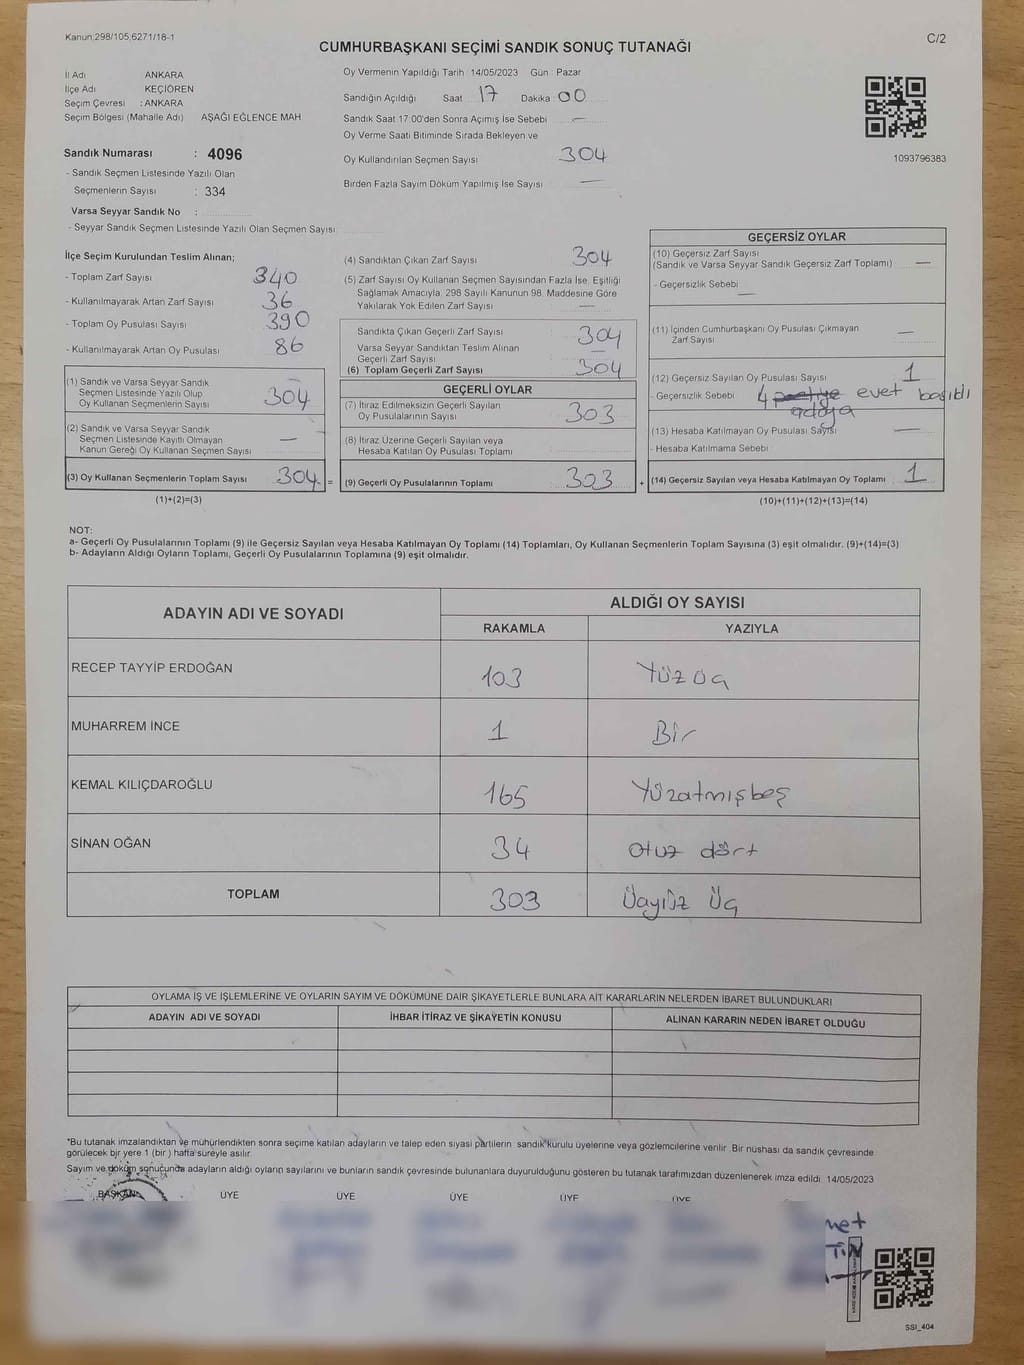 Kanun:298/105,6271/18-1
C/2
CUMHURBAŞKANI SEÇİMİ SANDIK SONUÇ TUTANAĞI
İl Adı ANKARA
İlçe Adı KEÇİÖREN
Seçim Çevresi : ANKARA
Seçim Bölgesi (Mahalle Adı) AŞAĞI EĞLENCE MAH.
Sandık Numarası : 4096
- Sandık Seçmen Listesinde Yazılı Olan
Seçmenlerin Sayısı : 334
Varsa Seyyar Sandık No :
- Seyyar Sandık Seçmen Listesinde Yazılı Olan Seçmen Sayısı:
Oy Vermenin Yapıldığı Tarih : 14/05/2023 Gün : Pazar
Sandığın Açıldığı Saat 17 Dakika 00
Sandık Saat 17:00'den Sonra Açımış İse Sebebi —
Oy Verme Saati Bitiminde Sırada Bekleyen ve
Oy Kullandırılan Seçmen Sayısı 304
Birden Fazla Sayım Döküm Yapılmış İse Sayısı —
1093796383
İlçe Seçim Kurulundan Teslim Alınan;
- Toplam Zarf Sayısı 340
- Kullanılmayarak Artan Zarf Sayısı 36
- Toplam Oy Pusulası Sayısı 390
- Kullanılmayarak Artan Oy Pusulası 86
(1) Sandık ve Varsa Seyyar Sandık
Seçmen Listesinde Yazılı Olup
Oy Kullanan Seçmenlerin Sayısı 304
(2) Sandık ve Varsa Seyyar Sandık
Seçmen Listesinde Kayıtlı Olmayan
Kanun Gereği Oy Kullanan Seçmen Sayısı —
(3) Oy Kullanan Seçmenlerin Toplam Sayısı 304 =
(1)+(2)=(3)
(4) Sandıktan Çıkan Zarf Sayısı 304
(5) Zarf Sayısı Oy Kullanan Seçmen Sayısından Fazla İse, Eşitliği
Sağlamak Amacıyla, 298 Sayılı Kanunun 98. Maddesine Göre
Yakılarak Yok Edilen Zarf Sayısı —
Sandıkta Çıkan Geçerli Zarf Sayısı 304
Varsa Seyyar Sandıktan Teslim Alınan
Geçerli Zarf Sayısı —
(6) Toplam Geçerli Zarf Sayısı 304
GEÇERLİ OYLAR
(7) İtiraz Edilmeksizin Geçerli Sayılan
Oy Pusulalarının Sayısı 303
(8) İtiraz Üzerine Geçerli Sayılan veya
Hesaba Katılan Oy Pusulası Toplamı
(9) Geçerli Oy Pusulalarının Toplamı 303 +
GEÇERSİZ OYLAR
(10) Geçersiz Zarf Sayısı
(Sandık ve Varsa Seyyar Sandık Geçersiz Zarf Toplamı) —
- Geçersizlik Sebebi
—
(11) İçinden Cumhurbaşkanı Oy Pusulası Çıkmayan
Zarf Sayısı —
(12) Geçersiz Sayılan Oy Pusulası Sayısı 1
- Geçersizlik Sebebi 4 evet basıldı
adaya
(13) Hesaba Katılmayan Oy Pusulası Sayısı —
- Hesaba Katılmama Sebebi
(14) Geçersiz Sayılan veya Hesaba Katılmayan Oy Toplamı 1
(10)+(11)+(12)+(13)=(14)
NOT:
a- Geçerli Oy Pusulalarının Toplamı (9) ile Geçersiz Sayılan veya Hesaba Katılmayan Oy Toplamı (14) Toplamları, Oy Kullanan Seçmenlerin Toplam Sayısına (3) eşit olmalıdır. (9)+(14)=(3)
b- Adayların Aldığı Oyların Toplamı, Geçerli Oy Pusulalarının Toplamına (9) eşit olmalıdır.
ADAYIN ADI VE SOYADI ALDIĞI OY SAYISI
RAKAMLA YAZIYLA
RECEP TAYYİP ERDOĞAN 103 Yüz üç
MUHARREM İNCE 1 Bir
KEMAL KILIÇDAROĞLU 165 Yüzatmışbeş
SİNAN OĞAN 34 otuz dört
TOPLAM 303 Üçyüz Üç
OYLAMA İŞ VE İŞLEMLERİNE VE OYLARIN SAYIM VE DÖKÜMÜNE DAİR ŞİKAYETLERLE BUNLARA AİT KARARLARIN NELERDEN İBARET BULUNDUKLARI
ADAYIN ADI VE SOYADI İHBAR İTİRAZ VE ŞİKAYETİN KONUSU ALINAN KARARIN NEDEN İBARET OLDUĞU
*Bu tutanak imzalandıktan ve mühürlendikten sonra seçime katılan adayların ve talep eden siyasi partilerin sandık kurulu üyelerine veya gözlemcilerine verilir. Bir nüshası da sandık çevresinde
görülecek bir yere 1 (bir ) hafta süreyle asılır.
Sayım ve döküm sonucunda adayların aldığı oyların sayılarını ve bunların sandık çevresinde bulunanlara duyurulduğunu gösteren bu tutanak tarafımızdan düzenlenerek imza edildi. 14/05/2023
BAŞKAN ÜYE ÜYE ÜYE ÜYE ÜYE
SSI_404